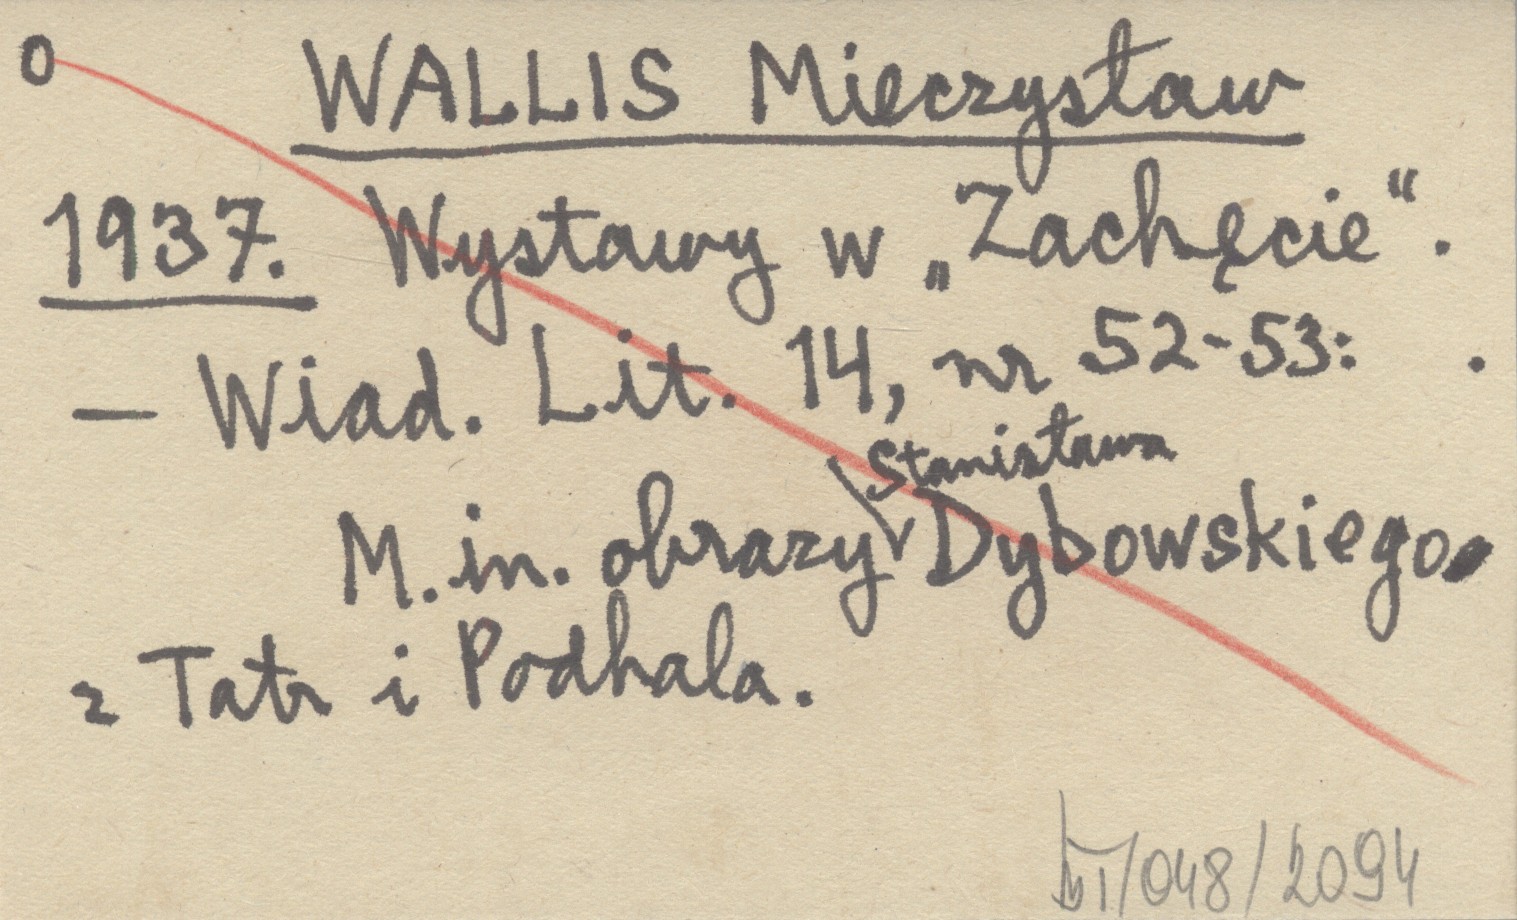 O WALLIS Mieczysław
1937. Wystawy w „Zachęcie".
— Wiad. Lit. 14, nr 52-53: .
Stanisława
M. in. obrazy Dybowskiego
z Tatr i Podhala.
/048/2094